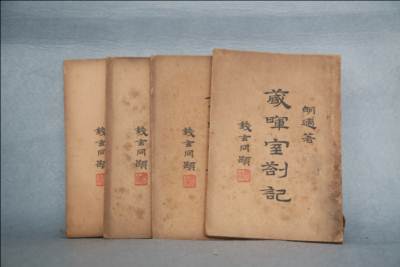 錢玄同題
錢玄同題
錢玄同題
胡適著
藏暉室劄記
錢玄同題